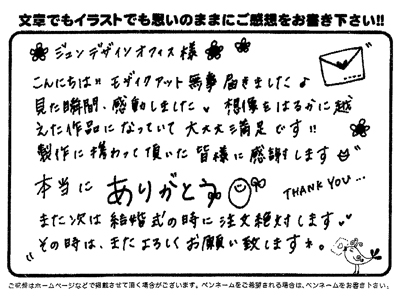 文章でもイラストでも思いのままにご感想をお書き下さい!!
ジュンデザインオフィス様
こんにちは!! モザイクアット無事届きました♪
見た瞬間、感動しました。想像をはるかに越
えた作品になっていて大大大満足です!!
製作に携わって頂いた皆様に感謝します
本当に ありがとう THANK YOU...
また次は結婚式の時に注文絶対します
その時は、またよろしくお願い致します。
ご記憶はホームページなどで掲載させて頂く場合がございます。ペンネームをご希望される場合は、ペンネームをお書き下さい。